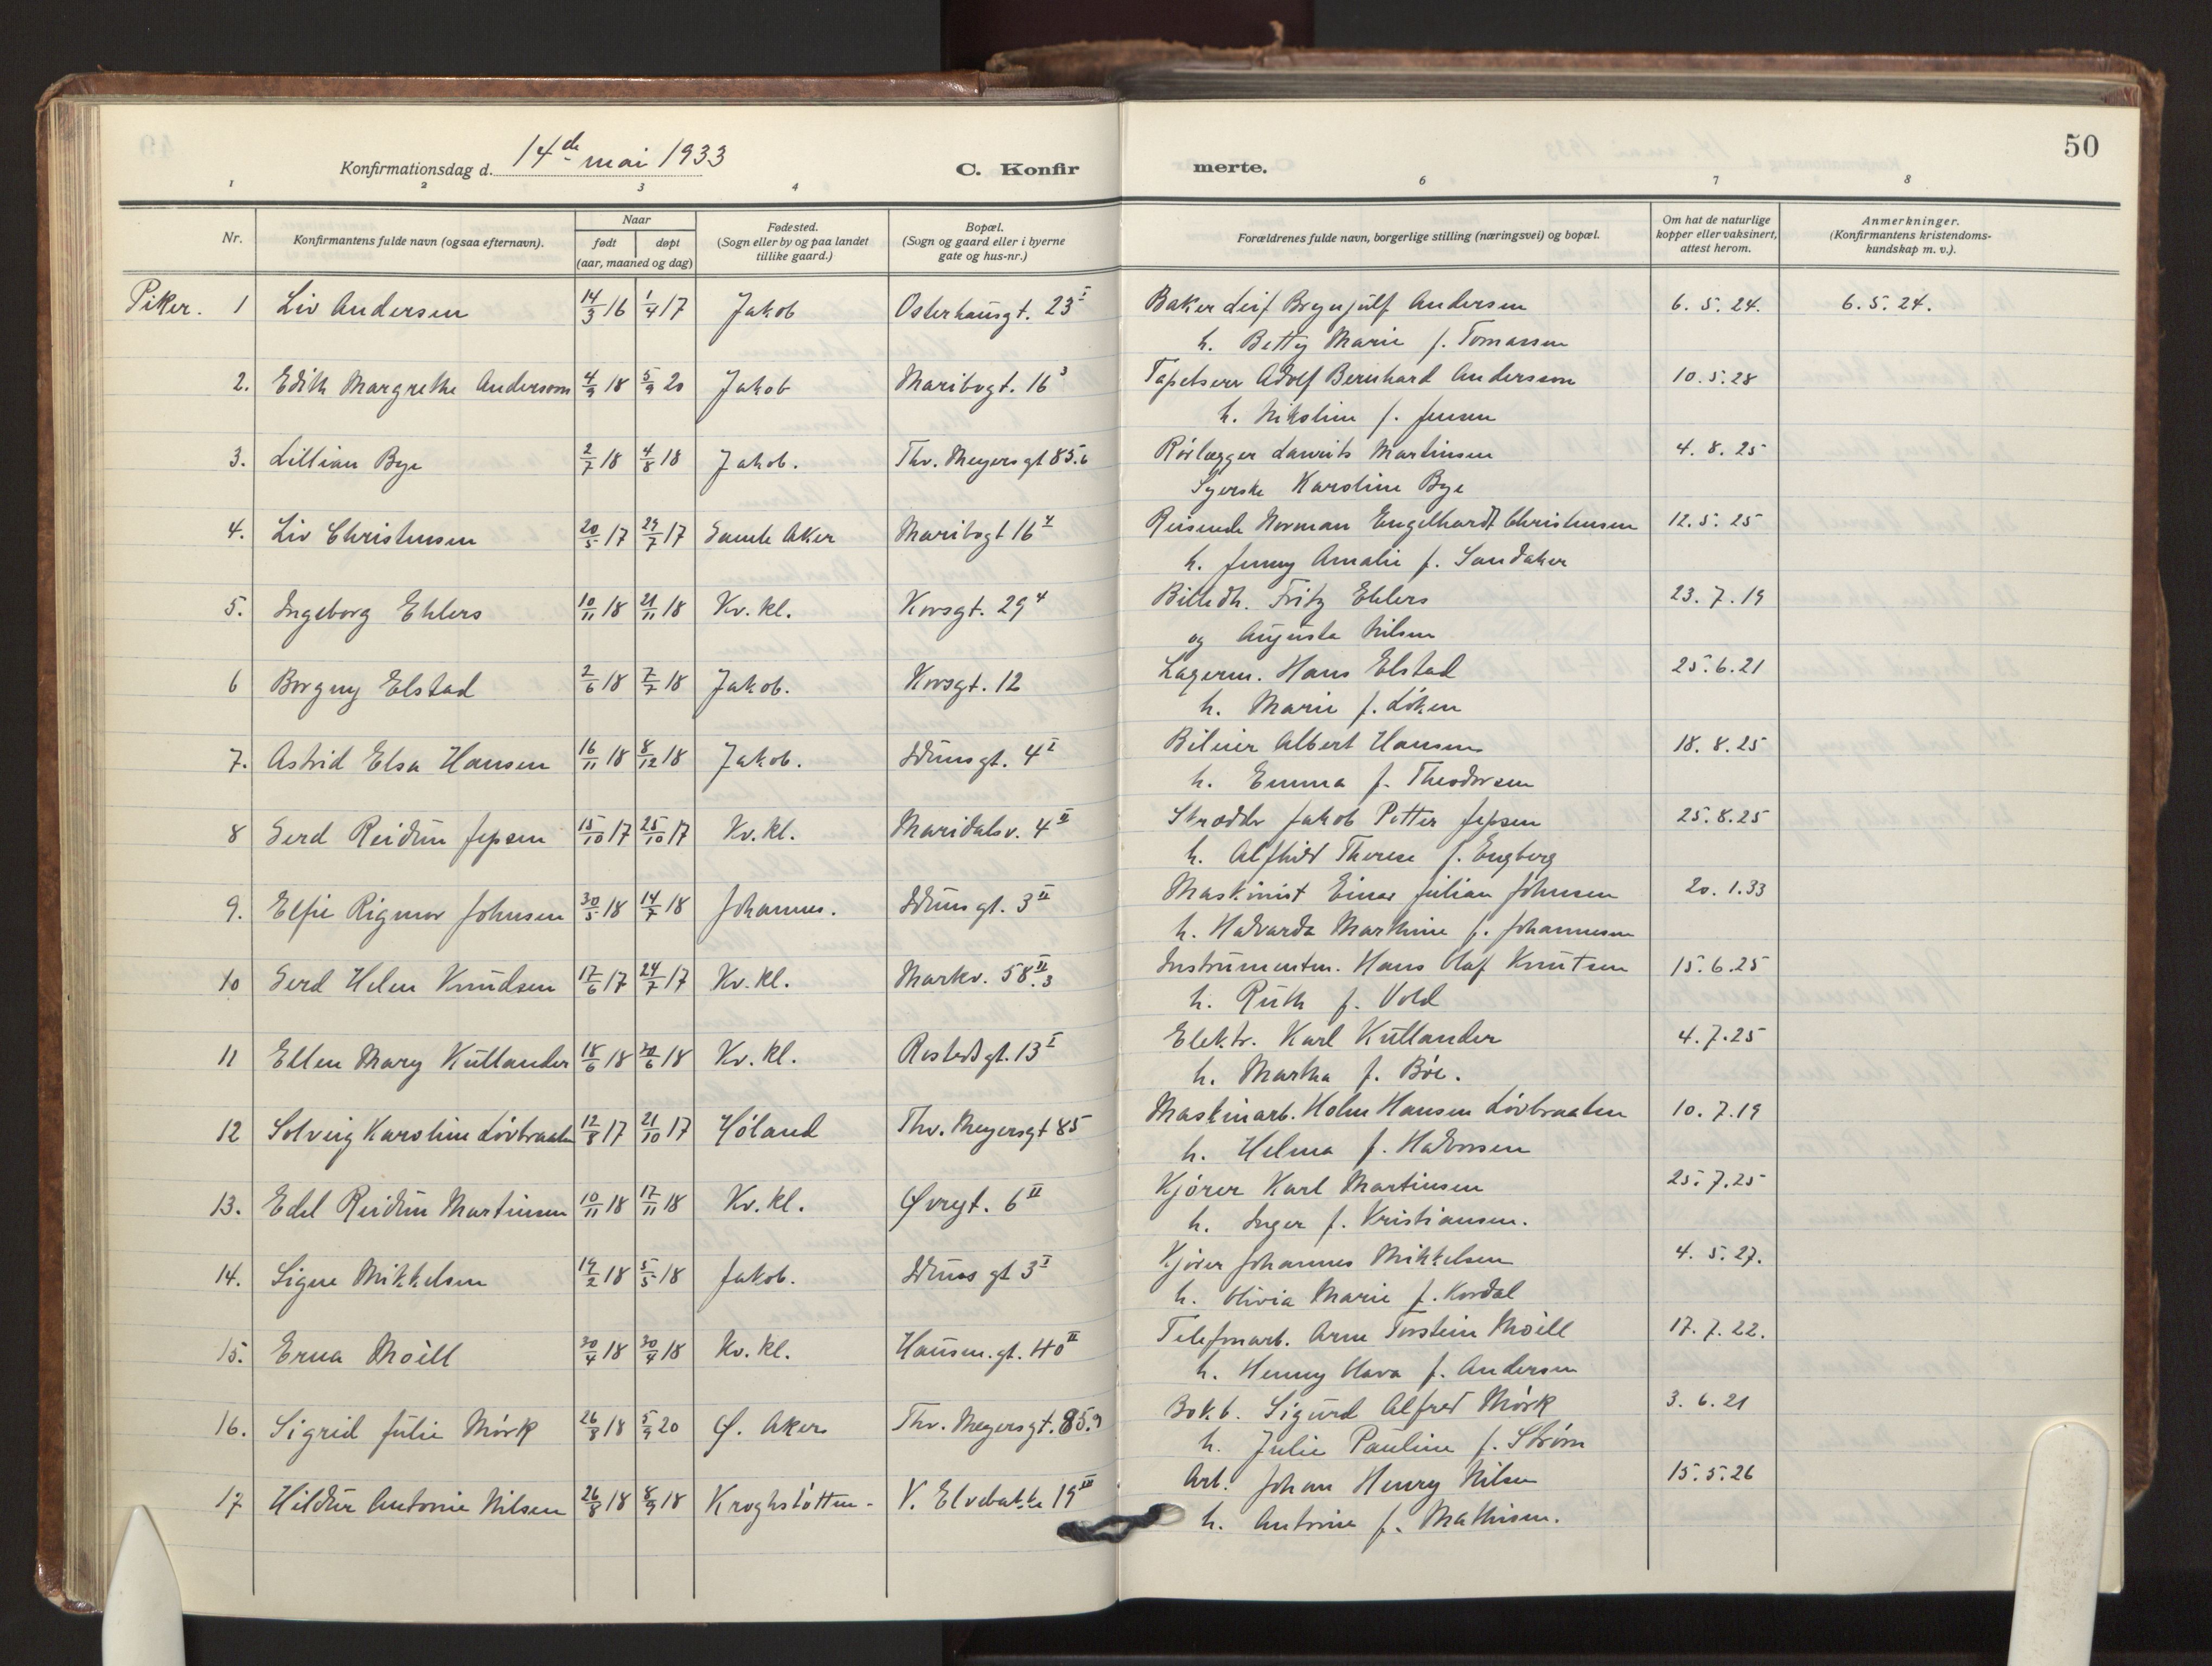 50
Konfirmationsdag d. 14de mai 1933
C. Konfirmerte.
1 2 3 4 6 7 8
Nr. Konfirmantens fulde navn (ogsaa efternavn). Naar født døpt (aar, maaned og dag) Fødested. (Sogn eller by og paa landet tillike gaard.) Bopæl. (Sogn og gaard eller i byerne gate og hus-nr.) Forældrenes fulde navn, borgerlige stilling (næringsvei) og bopæl. Om hat de naturlige kopper eller vaksinert, attest herom. Anmerkninger. (Konfirmantens kristendoms-kundskap m. v.).
Piker. 1 Liv Andersen 14/3 16 1/4 17 Jakob Osterhausgt. 23 I Baker Leif Brynjulf Andersen 6.5.24. 6.5.24.
h. Betty Marie f. Tomassen
2. Edith Margrethe Andersson 4/9 18 5/9 20 Jakob Maribogt. 16 3 Tapetserer Adolf Bernhard Andersson 10.5.28
h. Nikoline f. Jensen
3. Lillian Bye 2/7 18 4/8 18 Jakob. Thv. Meyersgt 85.6 Rörlægger Laurits Martinsen 4.8.25
Syerske Karoline Bye
4. Liv Christensen 20/5 17 29/7 17 Gamle Aker Maribogt 16 4 Reisende Norman Engelhardt Christensen 12.5.25
h. Jenny Amalie f. Sandaker
5. Ingeborg Ehlers 10/11 18 21/11 18 Kv. kl. Korsgt. 29 4 Billedh. Fritz Ehlers 23.7.19
og Augusta Nilsen
6 Borgny Elstad 2/6 18 7/7 18 Jakob. Korsgt. 12 Lagerm. Hans Elstad 25.6.21
h. Marie f. Löken
7. Astrid Elsa Hansen 16/11 18 8/12 18 Jakob. Idunsgt. 4 I Bileier Albert Hansen 18.8.25
h. Emma f. Theodorsen
8 Gerd Reidun Jepsen 15/10 17 25/10 17 Kv. kl. Maridalsv. 4 II Skrædder Jakob Petter Jepsen 25.8.25
h. Alfhild Therese f. Engberg
9. Elfie Rigmor Johnsen 30/5 18 14/7 18 Johannes. Idunsgt. 3 II Maskinist Einar Julian Johnsen 20.1.33
h. Halvarda Marthine f. Johannesen
10 Gerd Helen Knudsen 17/6 17 24/7 17 Kv. kl. Markv. 58 II.3 Instrumentm. Hans Olaf Knutsen 15.6.25
h. Ruth f. Vold
11 Ellen Mary Kullander 18/6 18 30/6 18 Kv. kl. Rostedsgt. 13 I Elektr. Karl Kullander 4.7.25
h. Martha f. Böe.
12 Solveig Karoline Lövbraaten 12/8 17 21/10 17 Höland Thv. Meyersgt 85 Maskinarb. Holm Hansen Lövbraaten 10.7.19
h. Helma f. Halvorsen
13. Edel Reidun Martinsen 10/11 18 17/11 18 Kv. kl. Øvregt. 6 II Kjörer Karl Martinsen 25.7.25
h. Inger f. Kristiansen.
14. Signe Mikkelsen 14/2 18 5/5 18 Jakob. Iduns gt 3 I Kjörer Johannes Mikkelsen 4.5.27.
h. Olivia Marie f. Kordal
15. Erna Moëll 30/4 18 30/4 18 Kv. kl. Hausm.gt. 40 II Telefonarb. Arne Torstein Moëll 17.7.22.
h. Henny Olava f. Andersen
16. Sigrid Julie Mörk 26/8 18 5/9 20 Ø. Aker Thv. Meyersgt. 85.9 Bokb. Sigurd Alfred Mörk 3.6.21
h. Julie Pauline f. Ström
17 Hildur Antonie Nilsen 26/8 18 8/9 18 Kroghstötten- V. Elvebakke 19 III Arb. Johan Henry Nilsen 15.5.26
h. Antonie f. Mathisen.